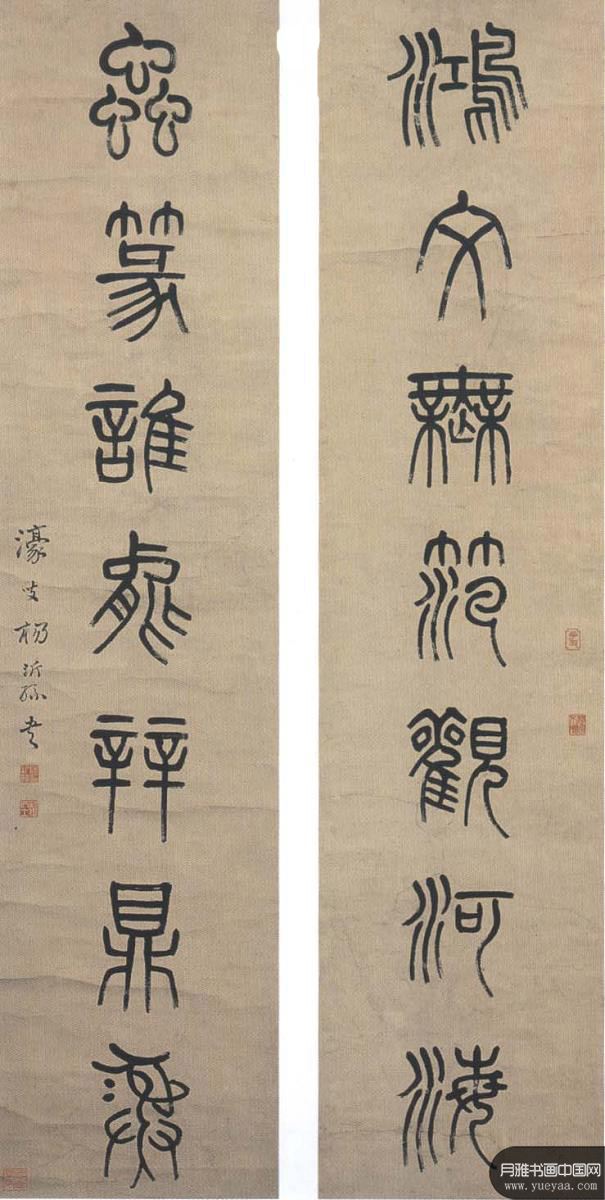 鴻文無笵觀河海
蟲篆誰能辡鼎彝
濠叟楊沂孫書
月雅书画中国网
www.yueyaa.com